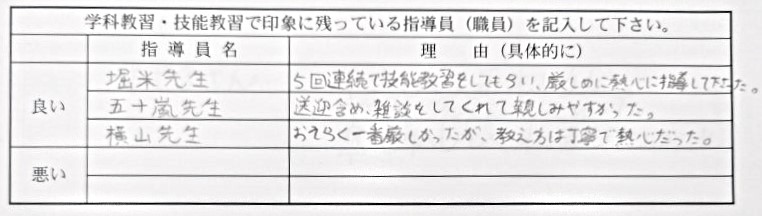 学科教習・技能教習で印象に残っている指導員（職員）を記入して下さい。
指導員名 理由（具体的に）
良い 堀米先生 5回連続で技能教習をしてもらい、厳しめに熱心に指導して下さった。
五十嵐先生 送迎含め、雑談をしてくれて親しみやすかった。
横山先生 おそらく一番厳しかったが、教え方は丁寧で熱心だった。
悪い